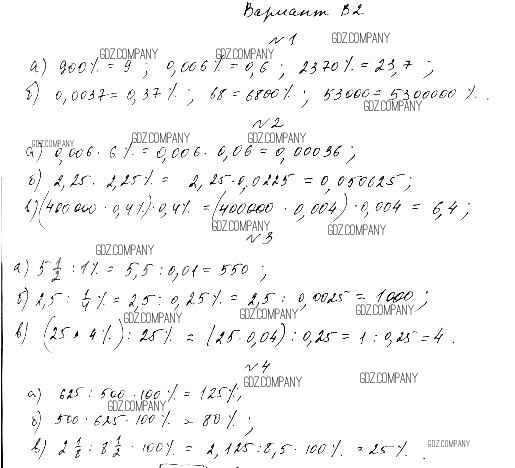 Вариант В2
№1
GDZ.COMPANY
GDZ.COMPANY GDZ.COMPANY
а) 900% = 9 ; 0,006% = 0,6 ; 2370% = 23,7 ;
б) 0,0037 = 0,37% ; 68 = 6800% ; 53000 = 5300000 % .
GDZ.COMPANY
№2
GDZ.COMPANY GDZ.COMPANY GDZ.COMPANY
а) 0,006 · 6% = 0,006 · 0,06 = 0,00036 ;
б) 2,25 · 2,25% = 2,25 · 0,0225 = 0,050625 ;
в) (400000 · 0,4%) · 0,4% = (400000 · 0,004) · 0,004 = 6,4 ;
GDZ.COMPANY GDZ.COMPANY
№3
GDZ.COMPANY
а) 5 1/2 : 1% = 5,5 : 0,01 = 550 ;
б) 2,5 : 1/4 % = 2,5 : 0,25% = 2,5 : 0,0025 = 1000 ;
GDZ.COMPANY GDZ.COMPANY GDZ.COMPANY
в) (25 · 4%) : 25% = (25 · 0,04) : 0,25 = 1 : 0,25 = 4 .
№4
GDZ.COMPANY GDZ.COMPANY
а) 625 : 500 · 100% = 125%,
GDZ.COMPANY
б) 500 · 625 · 100% = 80% ;
в) 2 1/8 : 8 1/2 · 100% = 2,125 : 8,5 · 100% = 25% .
GDZ.COMPANY